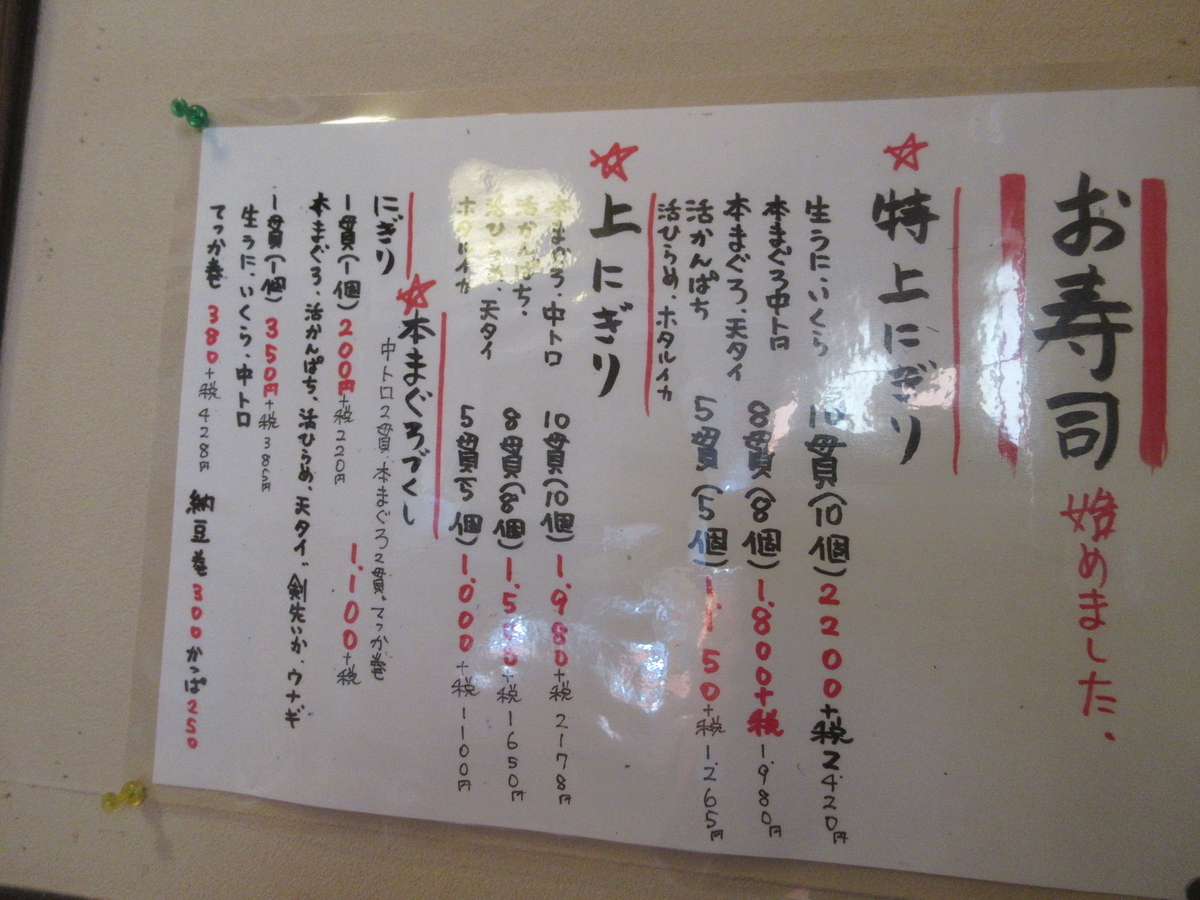 お寿司 始めました。
特上にぎり
生うに、いくら 10貫(10個) 2200+税 2420円
本まぐろ中トロ
本まぐろ、天タイ 8貫(8個) 1.800+税 1.980円
活かんぱち
活ひらめ、ホタルイカ 5貫(5個) 1.150+税 1.265円
上にぎり
本まぐろ、中トロ 10貫(10個) 1.980+税 2178円
活かんぱち、 8貫(8個) 1.500+税 1650円
活ひらめ、天タイ
ホタルイカ 5貫(5個) 1.000+税 1100円
本まぐろづくし
中トロ2貫、本まぐろ2貫、てっか巻
1.100+税
にぎり
1貫(1個) 200円+税 220円
本まぐろ、活かんぱち、活ひらめ、天タイ、剣先いか、ウナギ
1貫(1個) 350円+税 385円
生うに、いくら、中トロ
てっか巻 380+税 428円 納豆巻 300 かっぱ 250